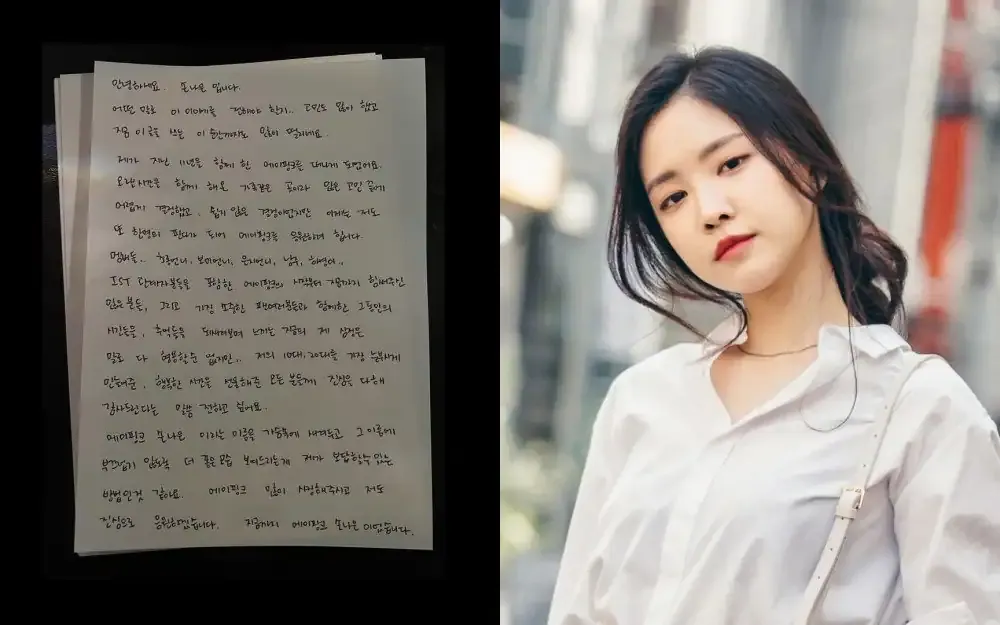 안녕하세요. 손나은 입니다.
어떤 말로 이 이야기를 전해야 할지.. 고민도 많이 했고
지금 이 글을 쓰는 이 순간까지도 많이 떨리네요.
제가 지난 11년을 함께 한 에이핑크를 떠나게 되었어요.
오랜시간을 함께 해온 가족같은 곳이라 많은 고민 끝에
어렵게 결정했고, 쉽지 않은 결정이었지만 이제는 저도
또 한명의 판다가 되어 에이핑크를 응원하려 합니다.
멤버들.. 초롱언니, 보미언니, 은지언니, 남주, 하영이,,
IST 관계자분들을 포함한 에이핑크의 시작부터 지금까지 함께해주신
많은 분들, 그리고 가장 소중한 판다여러분들과 함께한 그동안의
시간들을, 추억들을 되새겨보며 느끼는 지금의 제 심정은
말로 다 형용할 수 없지만,, 저의 10대, 20대를 가장 눈부시게
만들어준, 행복한 시간을 선물해준 모든 분들께 진심을 다해
감사드린다는 말씀 전하고 싶어요..
에이핑크 손나은 이라는 이름을 가슴속에 새겨두고, 그 이름에
부끄럽지 않도록 더 좋은 모습 보여드리는게 제가 보답할 수 있는
방법인것 같아요. 에이핑크 많이 사랑해주시고 저도
진심으로 응원하겠습니다. 지금까지 에이핑크 손나은 이었습니다.